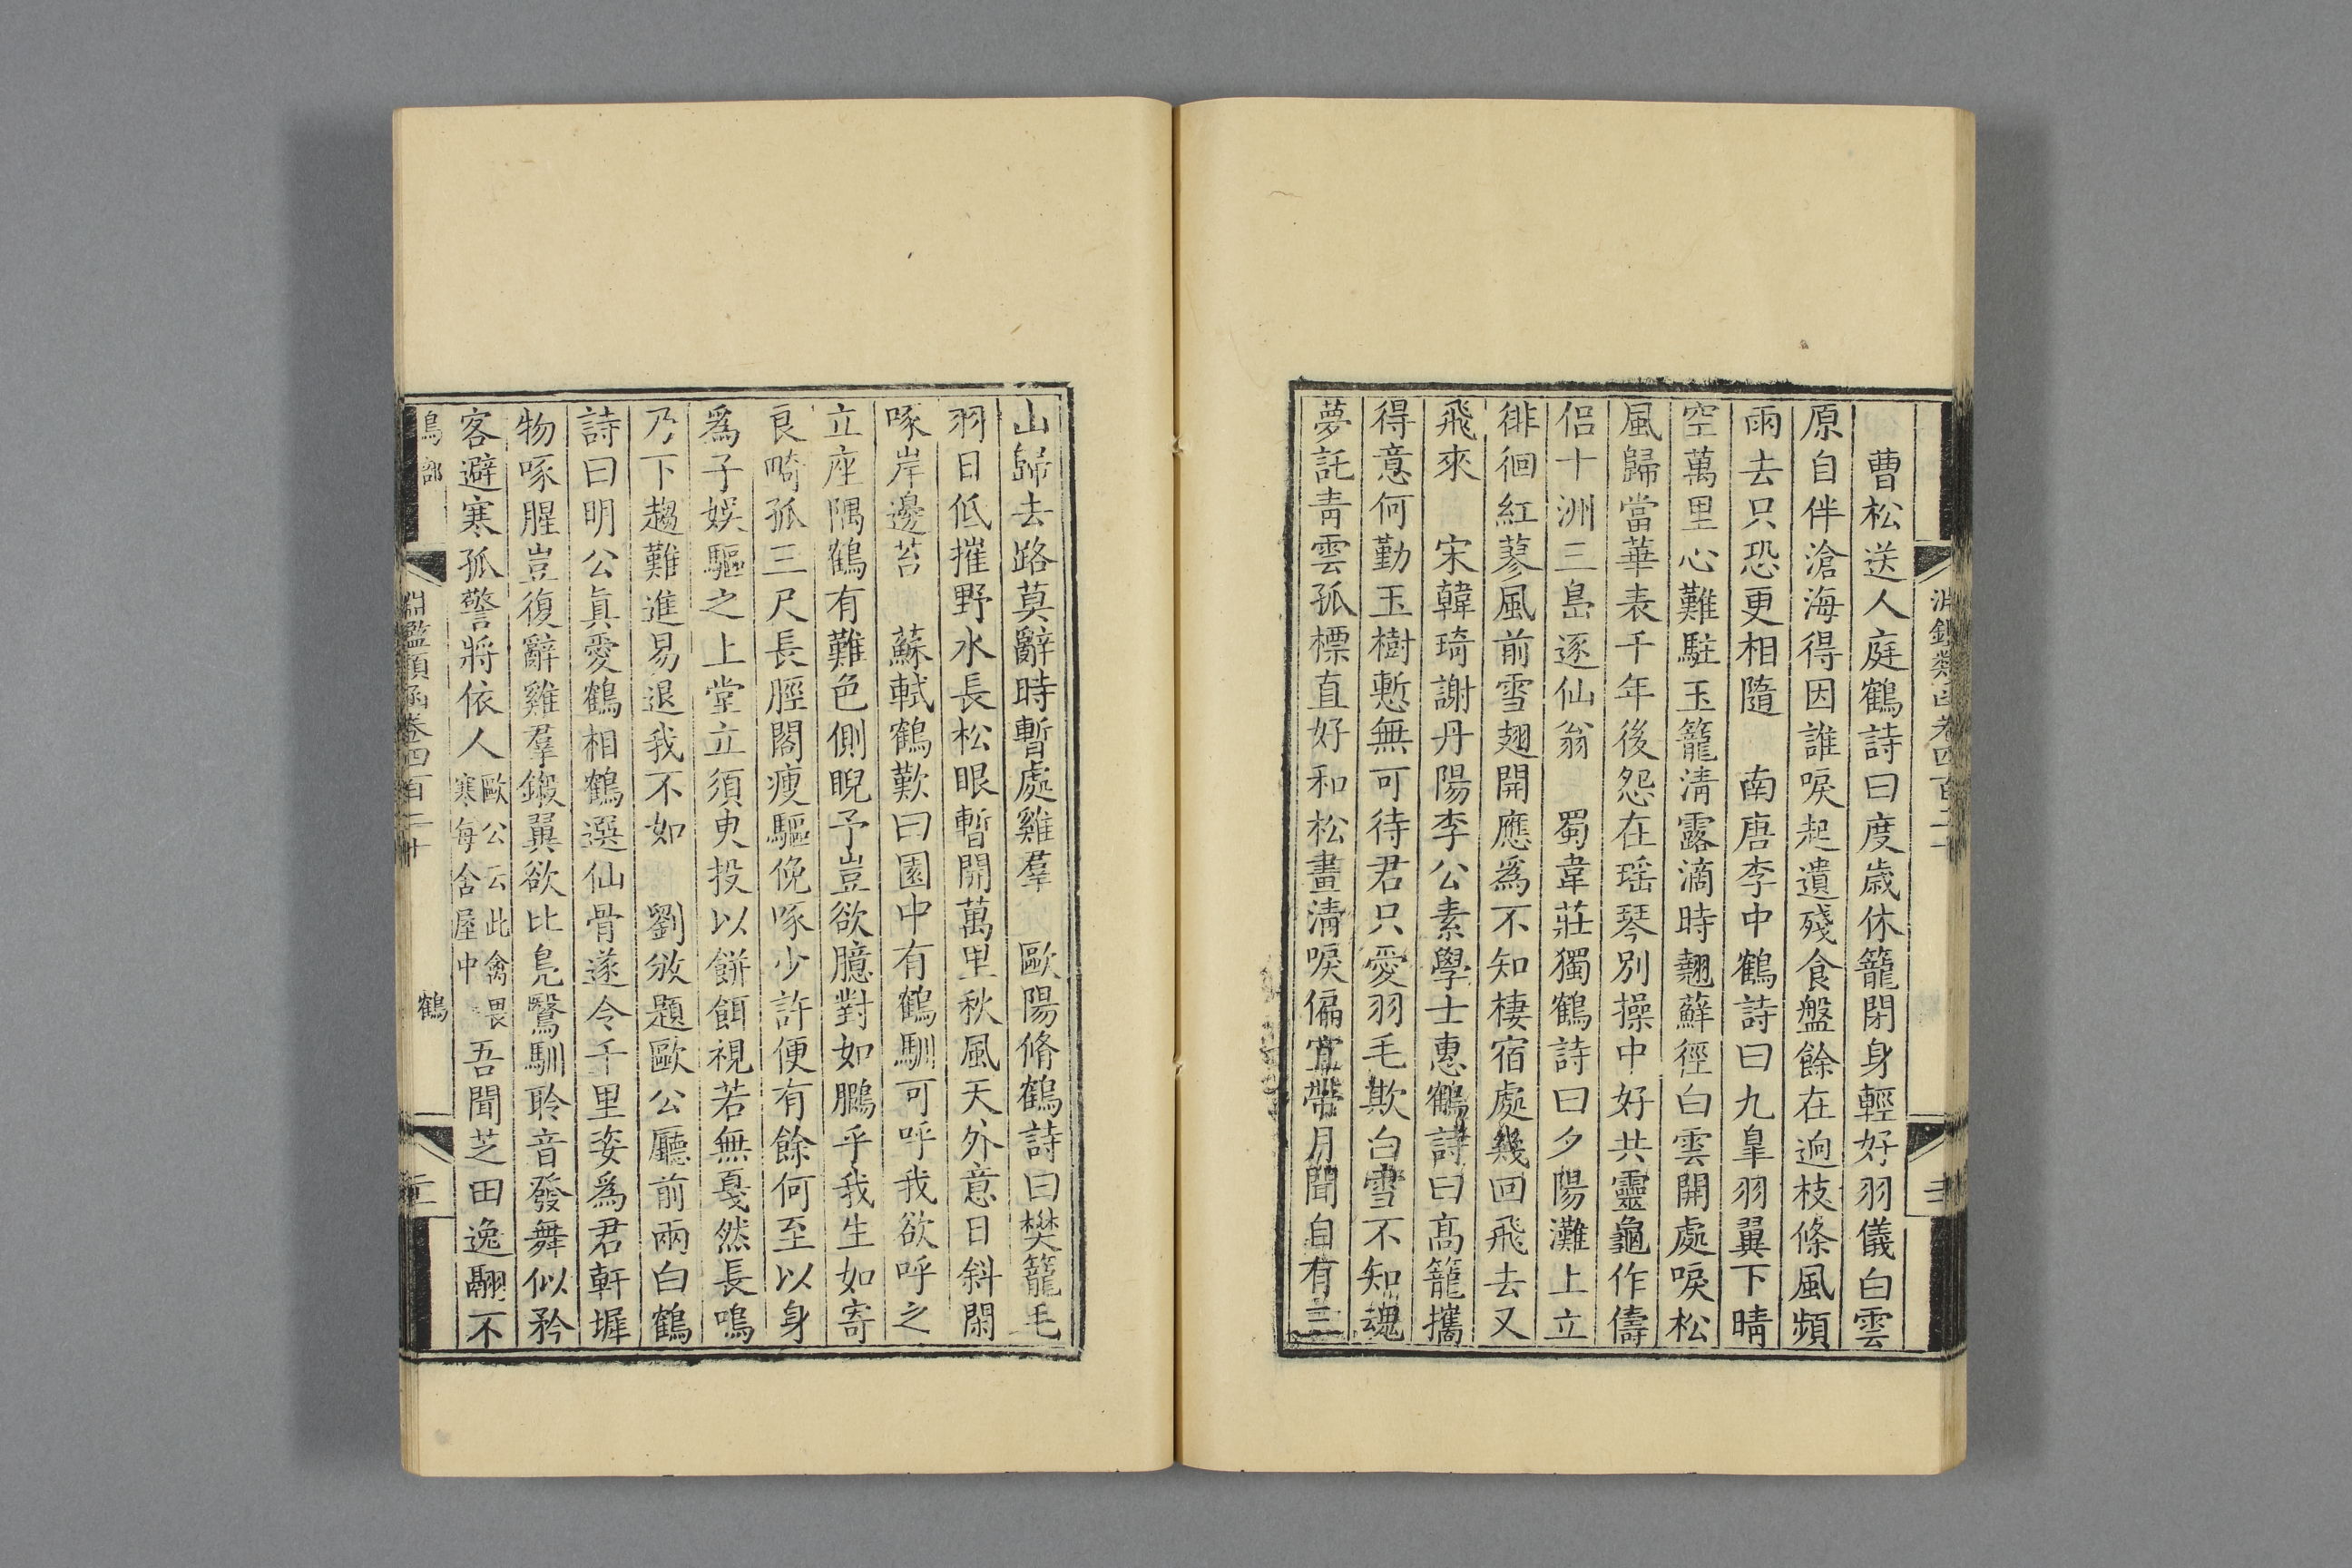 曹松送人庭鶴詩曰度歲休籠閉身輕好羽儀白雲
原自伴滄海得因誰唳起遺殘食盤餘在逈枝條風頻
雨去只恐更相隨　南唐李中鶴詩曰九臯羽翼下晴
空萬里心難駐玉籠淸露滴時翹蘚徑白雲開處唳松
風歸當華表千年後怨在瑶琴別操中好共靈龜作儔
侶十洲三島逐仙翁　蜀韋莊獨鶴詩曰夕陽灘上立
徘徊紅蓼風前雪翅開應爲不知棲宿處幾回飛去又
飛來　宋韓琦謝丹陽李公素學士惠鶴詩曰高籠攜
得意何勤玉樹慙無可待君只愛羽毛欺白雪不知魂
夢託靑雲孤標直好和松畫淸唳偏宜帶月聞自有三
山歸去路莫辭時暫處雞羣　歐陽脩鶴詩曰樊籠毛
羽日低摧野水長松眼暫開萬里秋風天外意日斜閑
啄岸邊苔　蘇軾鶴歎曰園中有鶴馴可呼我欲呼之
立座隅鶴有難色側睨予豈欲臆對如鵩乎我生如寄
良畸孤三尺長脛閣瘦軀俛啄少許便有餘何至以身
爲子娛驅之上堂立須臾投以餅餌視若無戛然長鳴
乃下趨難進易退我不如　劉攽題歐公廳前兩白鶴
詩曰明公眞愛鶴相鶴選仙骨遂令千里姿爲君軒墀
物啄腥豈復辭雞羣鎩翼欲比鳧鷖馴聆音發舞似矜
客避寒孤警將依人歐公云此禽畏寒每舍屋中　吾聞芝田逸翮不
鳥部　淵鑑類函卷四百二十　鶴